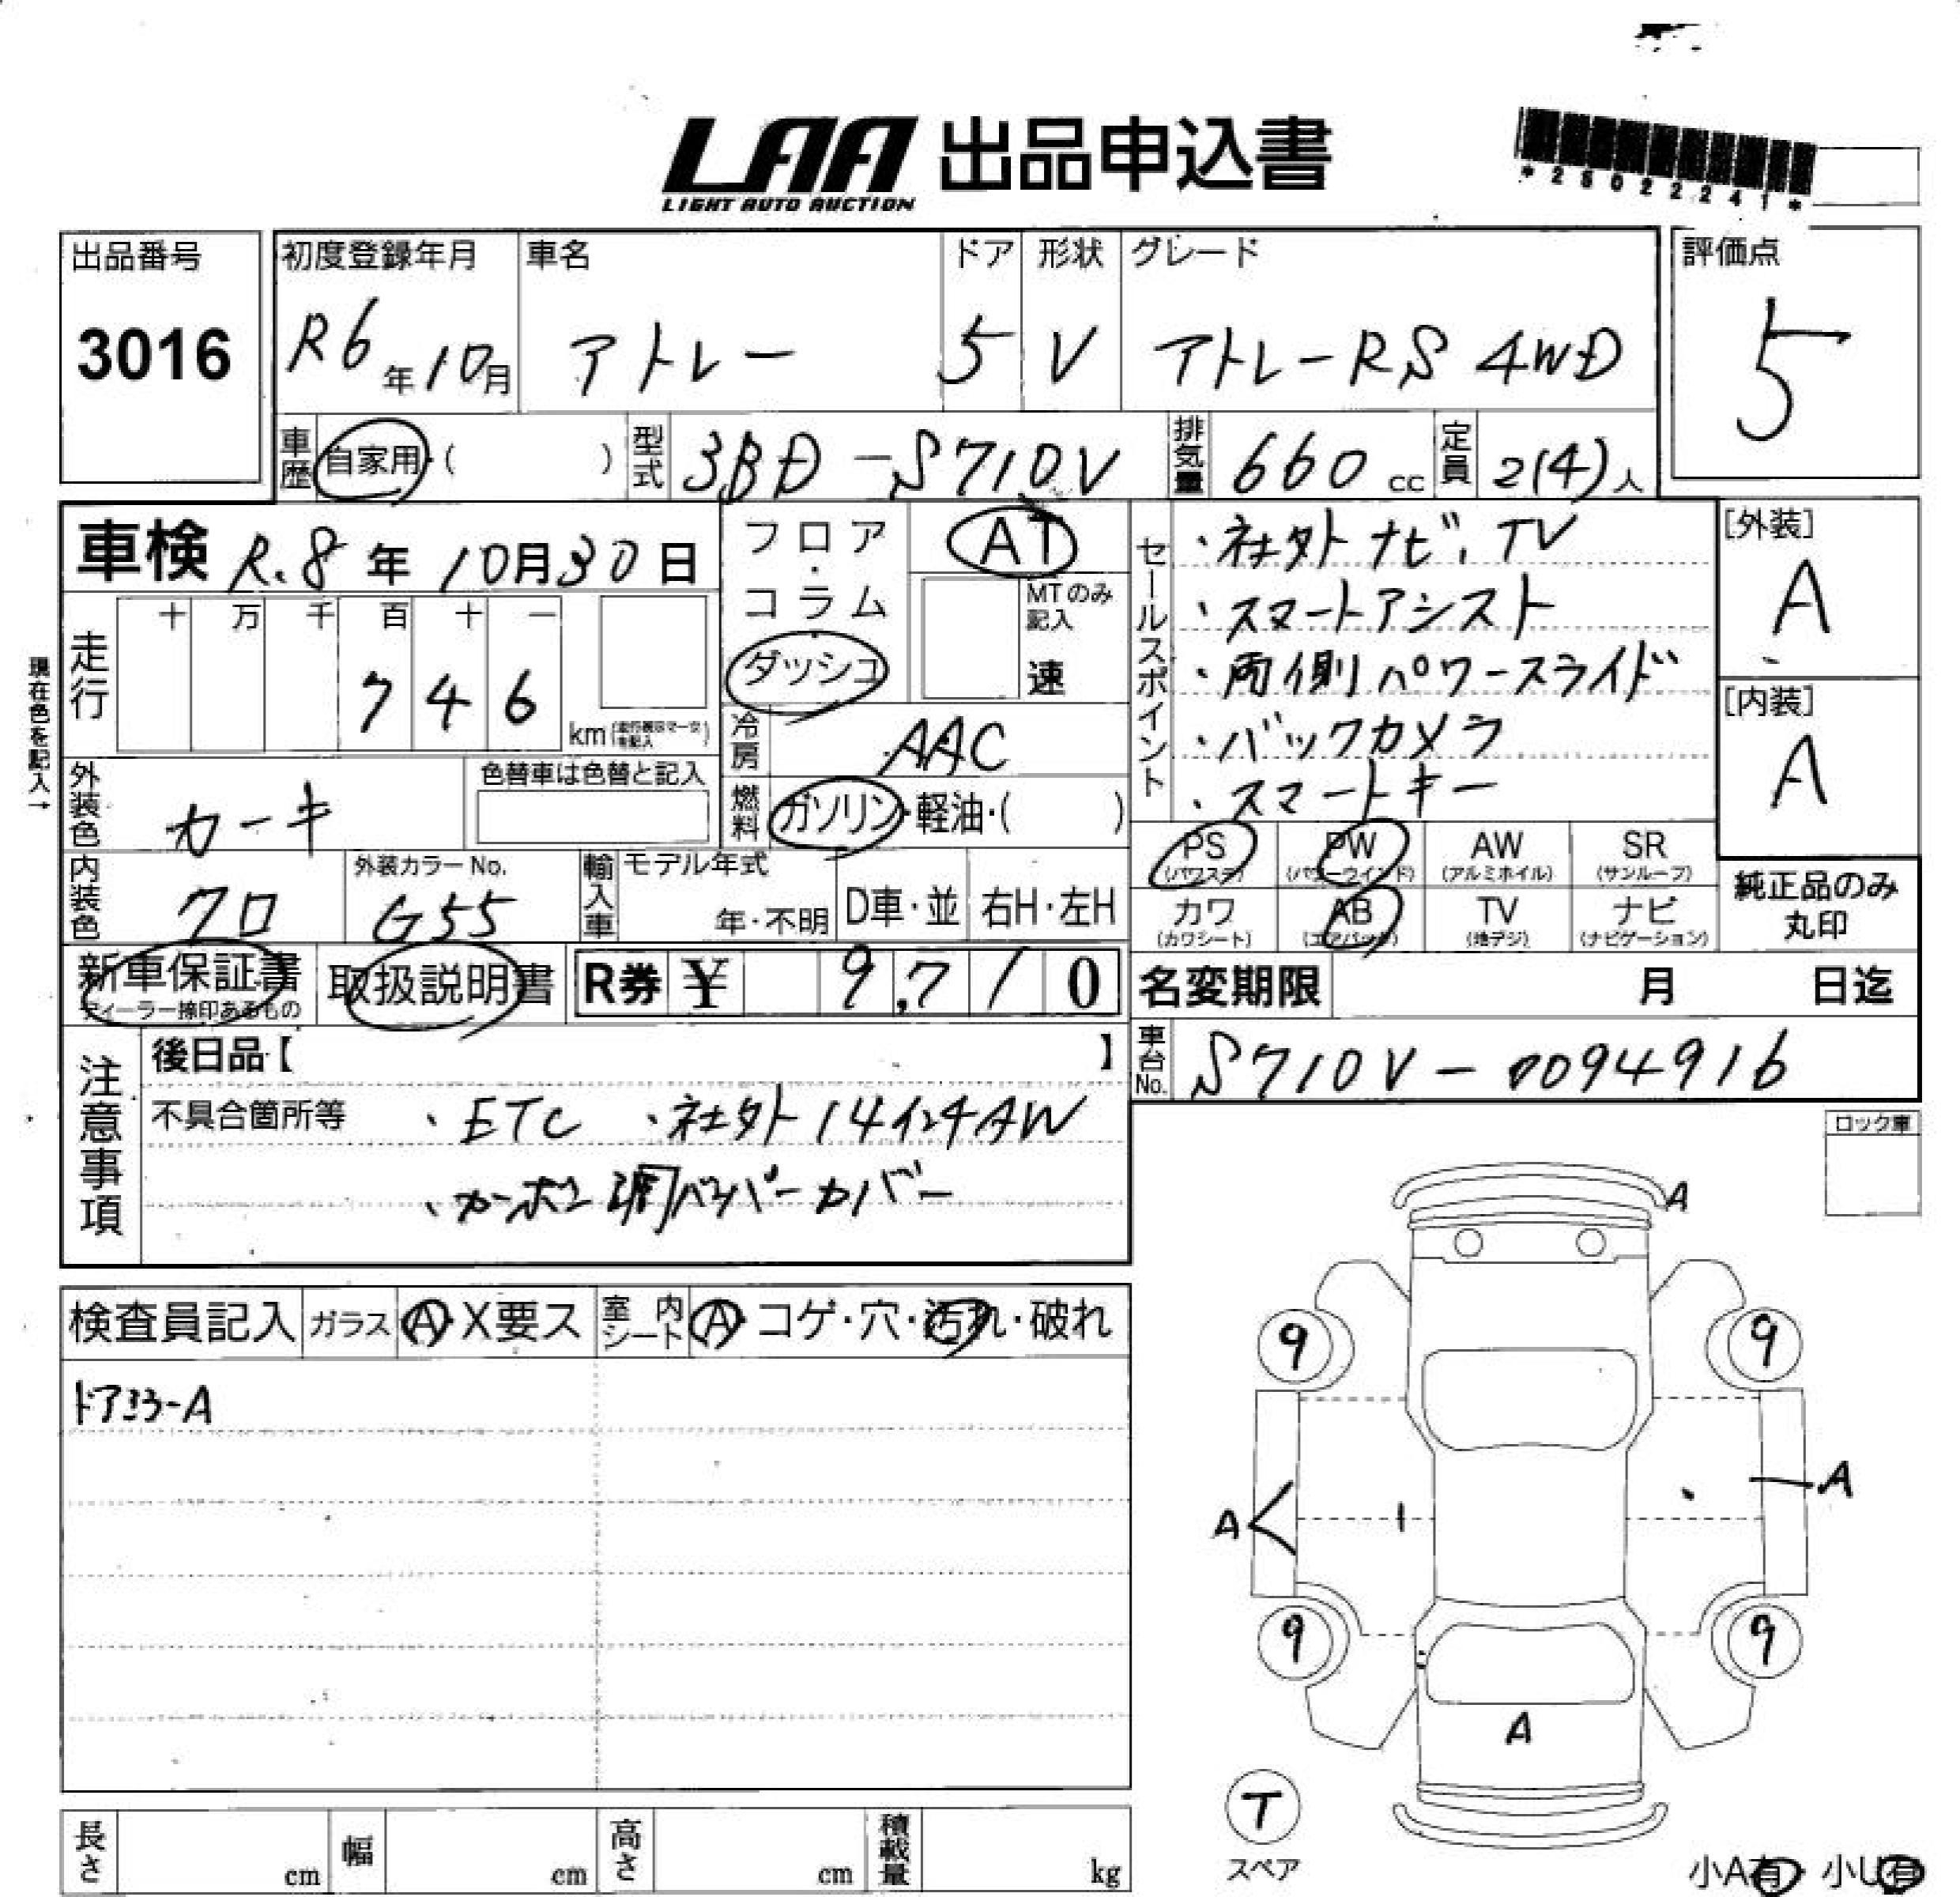 LAA 出品申込書
LIGHT AUTO AUCTION
出品番号
3016
初度登録年月
R6年10月
車名
アトレー
ドア
5
形状
V
グレード
アトレーRS 4WD
評価点
5
車歴 自家用・( )
型式 3BD-S710V
排気量 660 cc
定員 2(4)人
車検 R.8年10月30日
現在色を記入→
走行
十 万 千 百 十 一
7 4 6
km
フロア・コラム
ダッシュ
AT
MTのみ記入
速
冷房 AAC
燃料 ガソリン・軽油・( )
セールスポイント
・社外ナビ、TV
・スマートアシスト
・両側パワースライド
・バックカメラ
・スマートキー
[外装]
A
[内装]
A
外装色 カーキ
色替車は色替と記入
内装色 クロ
外装カラーNo.
G55
輸入車 モデル年式
年・不明
D車・並
右H・左H
PS (パワステ)
PW (パワーウインド)
AW (アルミホイル)
SR (サンルーフ)
カワ (カワシート)
AB (エアバック)
TV (地デジ)
ナビ (ナビゲーション)
純正品のみ
丸印
新車保証書
ディーラー捺印あるもの
取扱説明書
R券 ¥ 9,710
名変期限 月 日迄
車台No. S710V-0094916
注意事項
後日品【 】
不具合箇所等 ・ETC ・社外14インチAW
・カーボン調バンパーカバー
ロック車
検査員記入 ガラス A・X要ス 室内シート A・コゲ・穴・汚れ・破れ
ドアミラーA
A
9 9
A A
9 9
A
T
スペア
小A有・小U有
長さ cm 幅 cm 高さ cm 積載量 kg